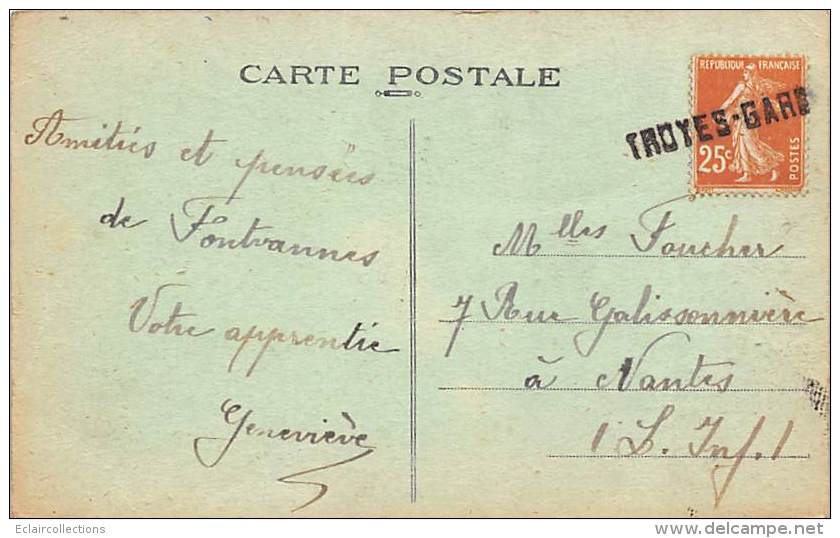 CARTE POSTALE
REPUBLIQUE FRANÇAISE
TROYES-GARE
25c
POSTES
Amitiés et pensées
de Fontvannes
Votre apprentie
Geneviève
Mlles Foucher
7 Rue Galissonnière
à Nantes
(L. Inf.)
Eclaircollections
www.delcampe.net